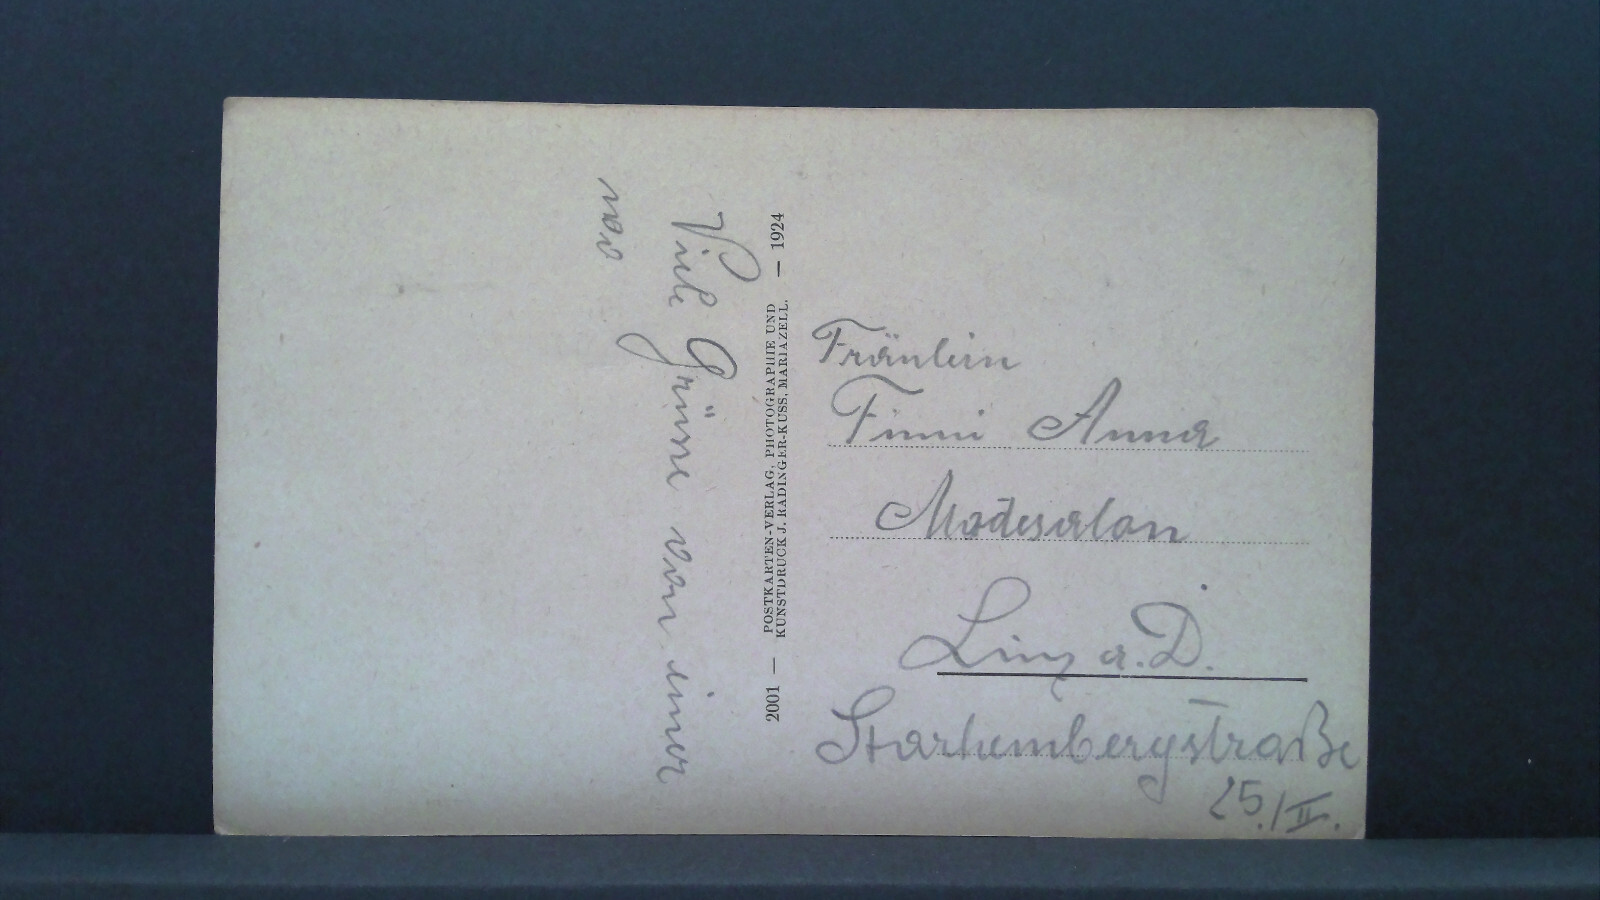 Viele Grüsse von einer
2001 — POSTKARTEN-VERLAG, PHOTOGRAPHIE UND — 1924
KUNSTDRUCK J. RADINGER-KUSS, MARIAZELL.
Fräulein
Finni Anna
Modesalon
Linz a. D.
Starhembergstraße
25./II.